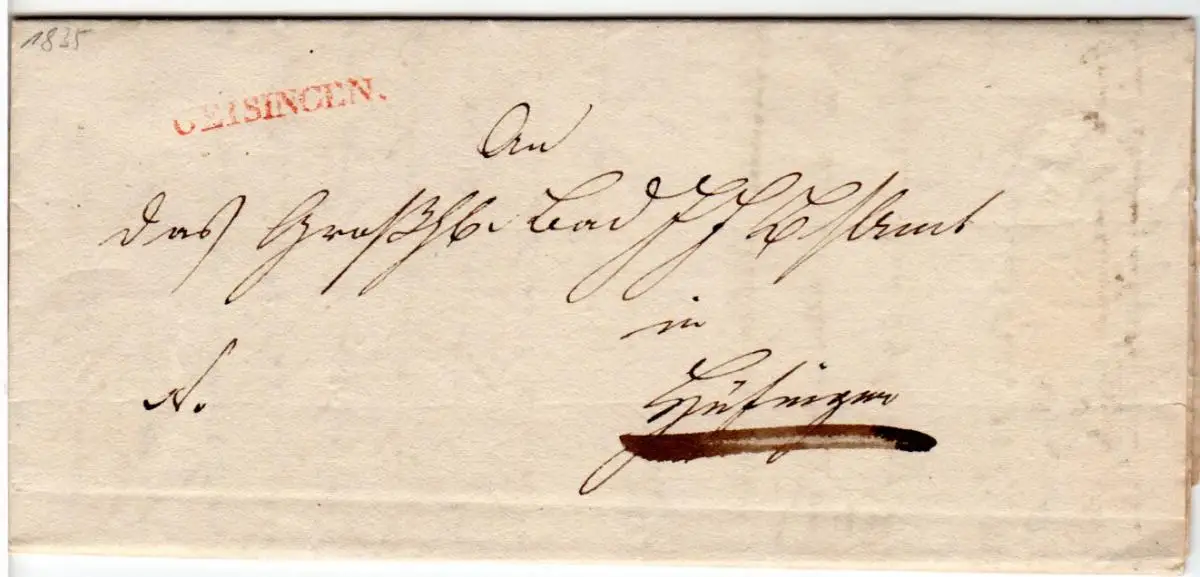 1835
GEISINGEN.
An
das Großh. Bad F F Bz Amt
in
Hüfingen